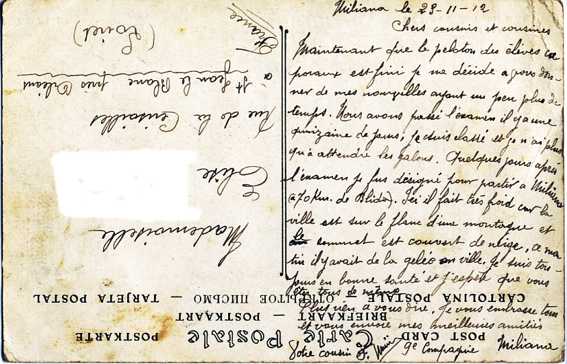 Miliana le 29-11-12
Chers cousins et cousines
Maintenant que le peloton des élèves ca
poraux est fini je me décide a vous don-
ner de mes nouvelles ayant un peu plus de
temps. Nous avons passé l'examen il y a une
quinzaine de jours, je suis classé et je n'ai plus
qu'à attendre les galons. Quelques jours après
l'examen je fus désigné pour partir à Miliana
(a 70 Km. de Blida). Ici il fait très froid car la
ville est sur le flanc d'une montagne et
le sommet est couvert de neige, ce ma
tin il y avait de la gelée en ville. Je suis tou
jours en bonne santé et j'espère que vous
êtes tous de même
Plus rien a vous dire, je vous embrasse tous
et vous envoie mes meilleures amitiés
Votre cousin
9e Compagnie Miliana
Mademoiselle
Elise
Rue de la
à St Jean le Blanc près Orléans
(Loiret)
France
Carte Postale
POST CARD — POSTKARTE
BRIEFKAART — POSTKAART
CARTOLINA POSTALE — ОТКРЫТОЕ ПИСЬМО — TARJETA POSTAL